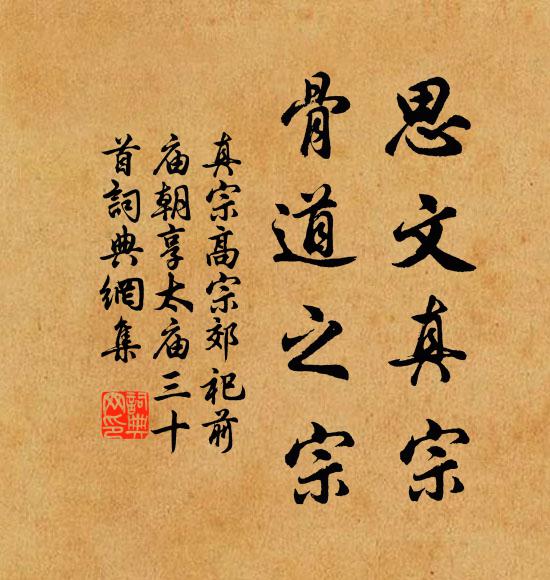 思文真宗
骨道之宗
真宗高宗郊祀前
庙朝享太庙三十
首詞典網集
詞典網印